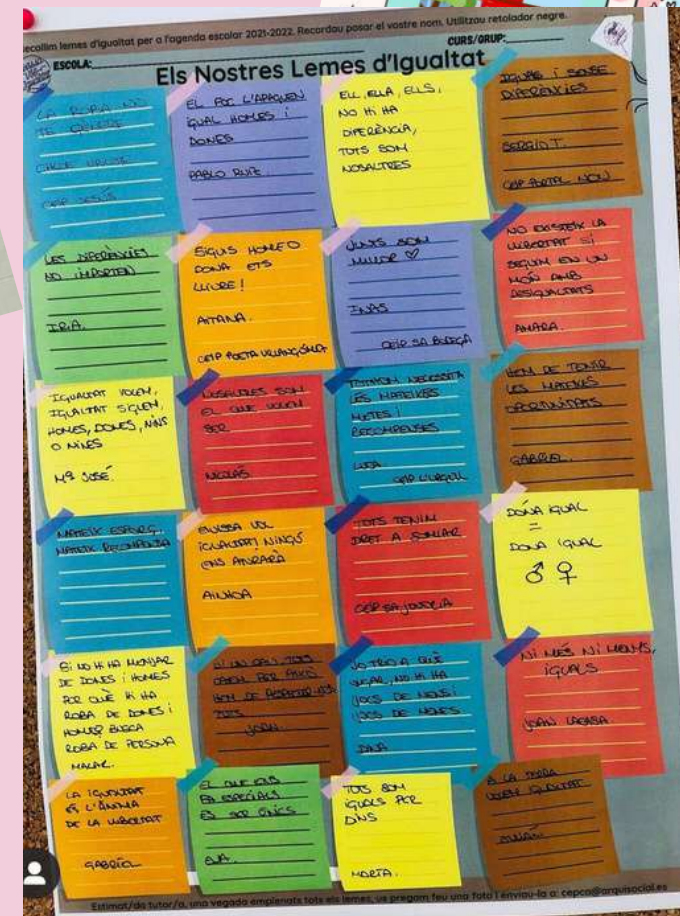 ecollim lemes d'igualtat per a l'agenda escolar 2021-2022. Recordau posar el vostre nom. Utilitzau retolador negre.
ESCOLA:
CURS/GRUP:
Els Nostres Lemes d'Igualtat
LA ROPA NO
TÉ GÈNERE
CEIP JESÚS
EL FOC L'APAGUEN
IGUAL HOMES I
DONES
PABLO RUIZ.
ELL, ELLA, ELLS,
NO HI HA
DIFERÈNCIA,
TOTS SOM
NOSALTRES
IGUALS I SENSE
DIFERÈNCIES
SERGIO T.
CEIP PORTAL NOU
LES DIFERÈNCIES
NO IMPORTEN
IRIA.
SIGUIS HOME O
DONA ETS
LLIURE!
AITANA.
CEIP POETA VILLANGÓMEZ
JUNTS SOM
MILLOR ♡
INAS
CEIP SA BODEGA
NO EXISTEIX LA
LLIBERTAT SI
SEGUIM EN UN
MÓN AMB
DESIGUALTATS
AMARA.
IGUALTAT VOLEM,
IGUALTAT SIGUEM,
HOMES, DONES, NINS
O NINES
Mª JOSÉ.
NOSALTRES SOM
EL QUE VOLEM
SER
NICOLÁS.
TOTHOM NECESSITA
LES MATEIXES
METES I
RECOMPENSES
CEIP L'URGELL
HEM DE TENIR
LES MATEIXES
OPORTUNITATS
GABRIEL.
MATEIX ESFORÇ,
MATEIX RECOMPENSA
EIVISSA VOL
IGUALTAT! NINGÚ
ENS ATURARÀ
AINHOA
TOTS TENIM
DRET A SOMIAR
CEIP SA JOVERIA
DÓNA IGUAL
=
DONA IGUAL
♂ ♀
SI NO HI HA MENJAR
DE DONES I HOMES
PER QUÈ HI HA
ROBA DE DONES I
HOMES? BUSCA
ROBA DE PERSONA
MACAR.
TOTS
JOAN.
JO TRIO A QUÈ
JUGAR, NO HI HA
JOCS DE NENS I
JOCS DE NENES
NI MÉS NI MENYS,
IGUALS
JOAN LABASA.
LA IGUALTAT
ÉS L'ÀNIMA
DE LA LLIBERTAT
GABRIEL
EL QUE ENS
FA ESPECIALS
ÉS SER ÚNICS
EVA.
TOTS SOM
IGUALS PER
DINS
MARTA.
VOLEM IGUALTAT
Estimat/da tutor/a, una vegada emplenats tots els lemes, us pregam feu una foto i enviau-la a: cepca@arquisocial.es